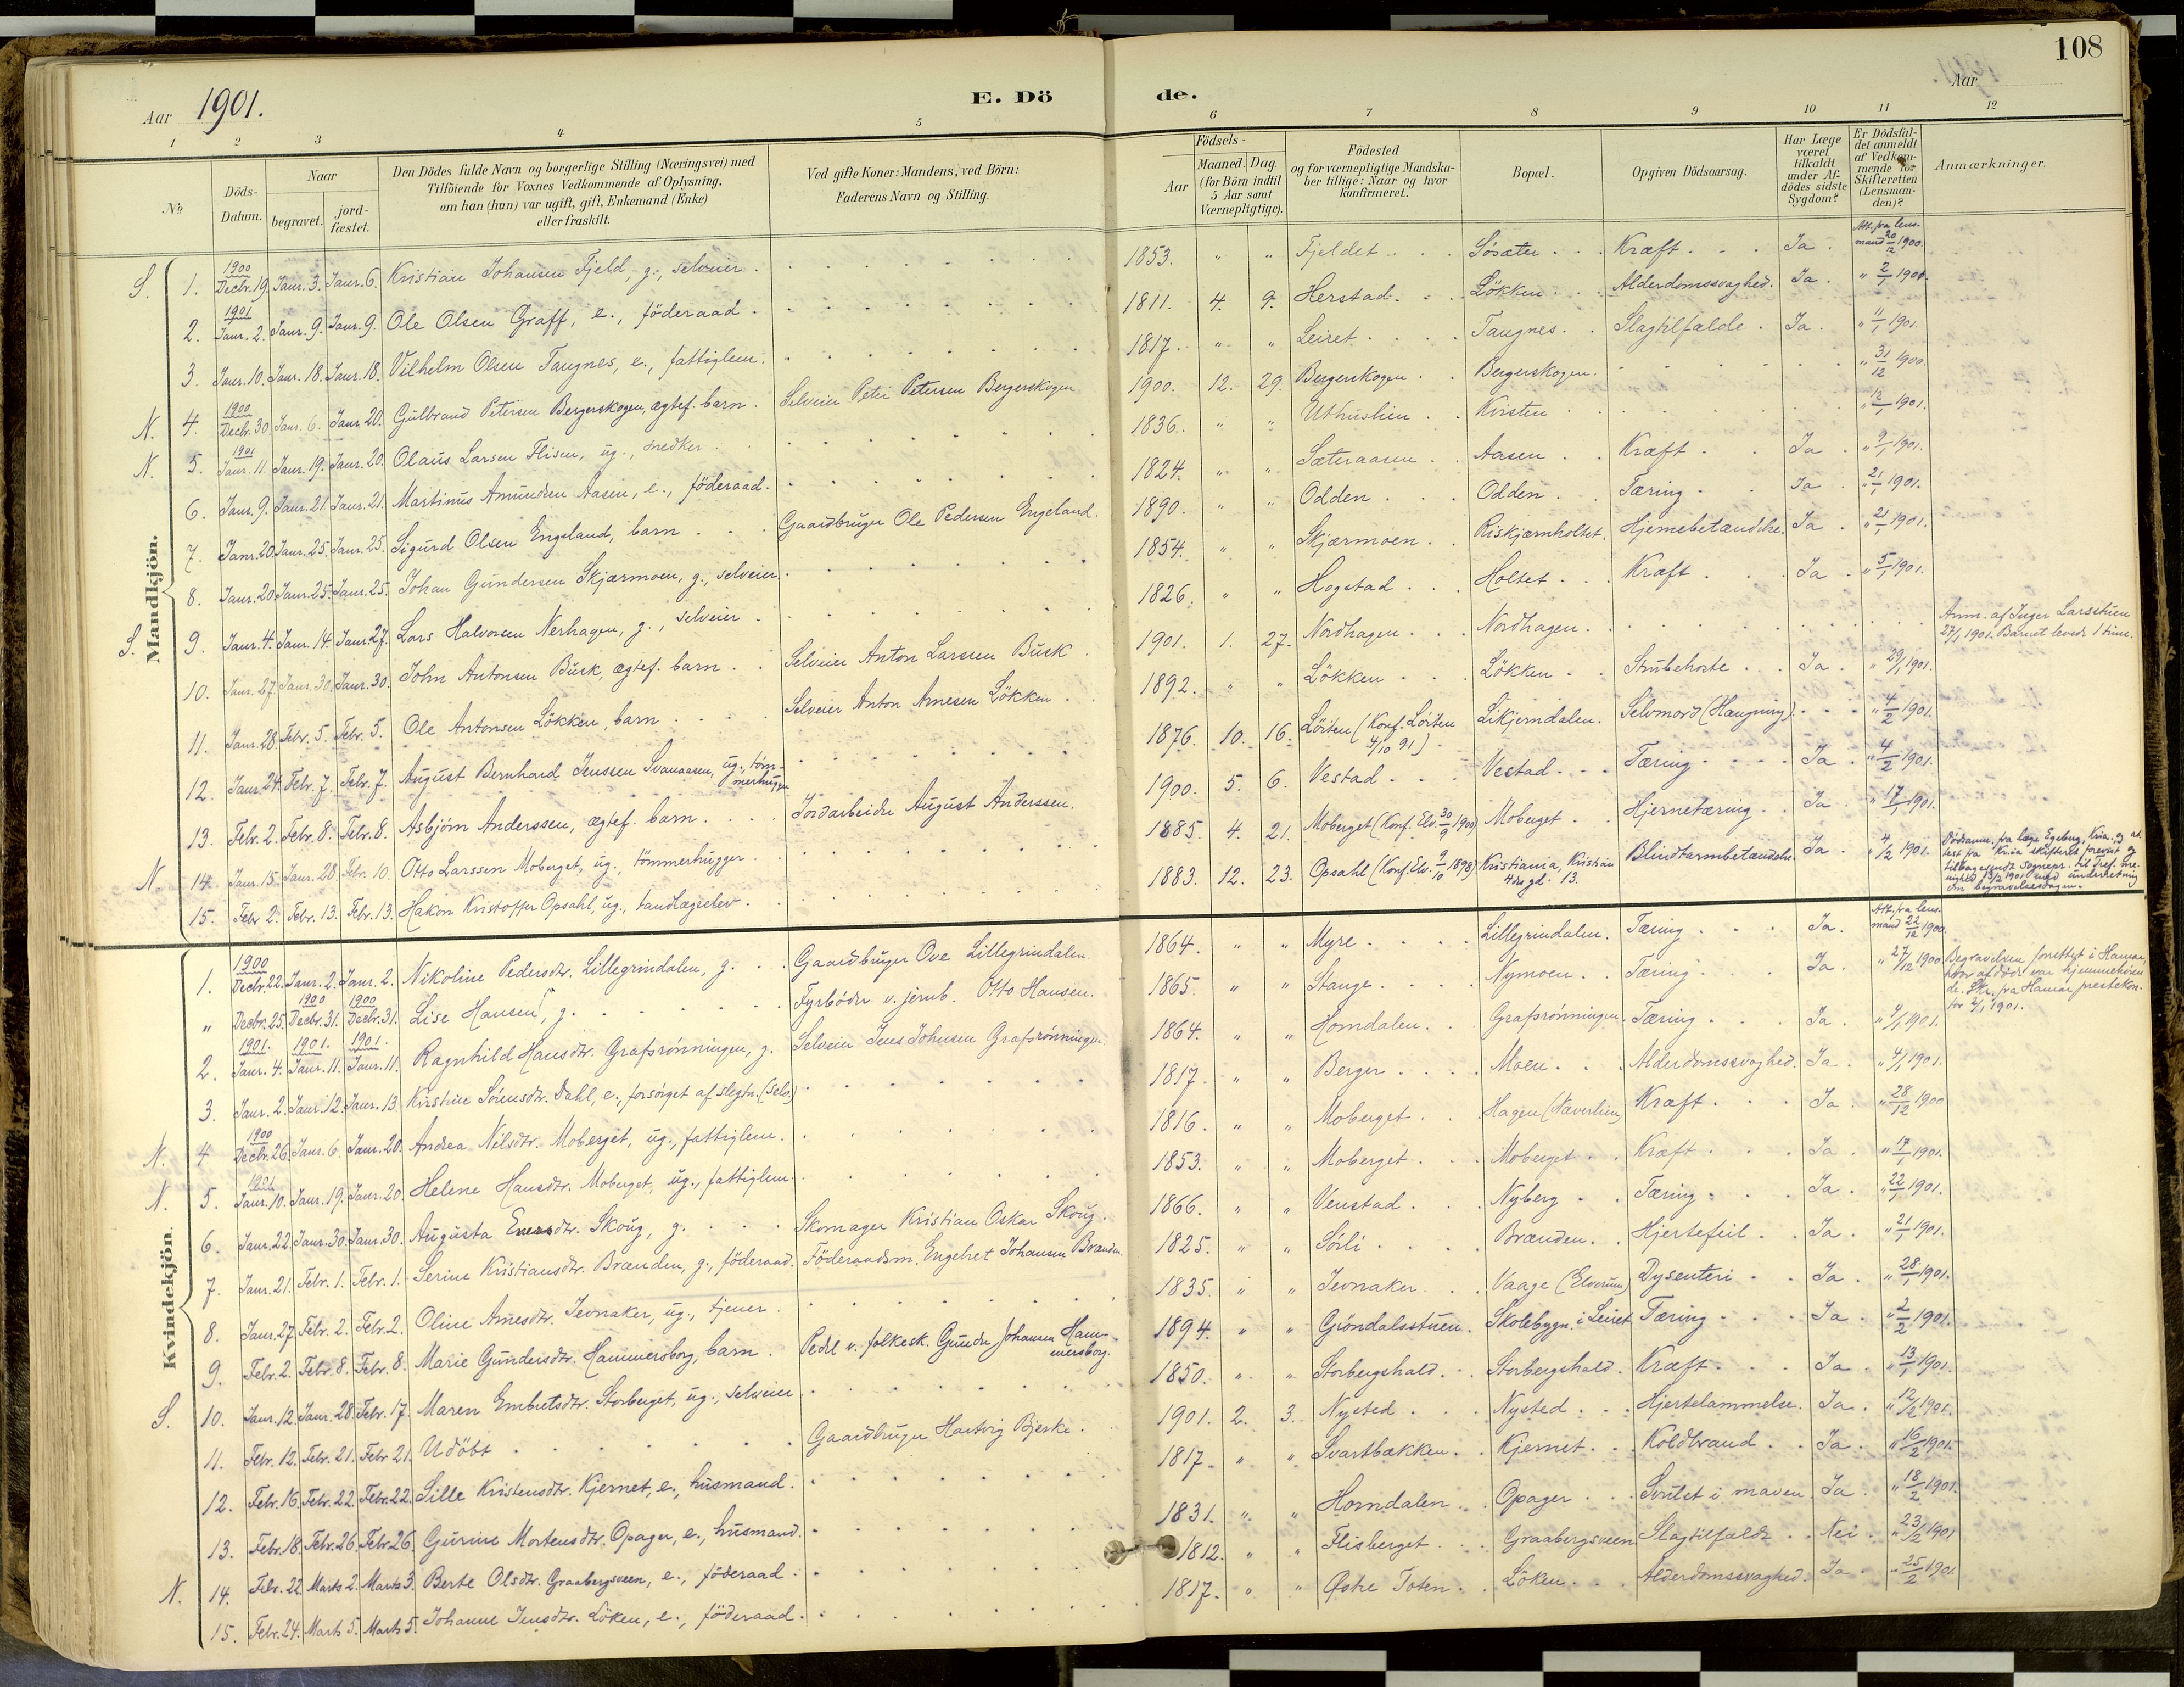 108
Aar 1901.
E. Döde.
Aar
1 2 3 4 5 6 7 8 9 10 11 12
No
Döds-Datum.
Naar
begravet. jord-fæstet.
Den Dödes fulde Navn og borgerlige Stilling (Næringsvei) med
Tilföiende for Voxnes Vedkommende af Oplysning,
om han (hun) var ugift, gift, Enkemand (Enke)
eller fraskilt.
Ved gifte Koner: Mandens, ved Börn:
Faderens Navn og Stilling.
Födsels-
Aar Maaned. Dag.
(for Börn indtil
5 Aar samt
Værnepligtige).
Födested
og for værnepligtige Mandska-
ber tillige: Naar og hvor
konfirmeret.
Bopæl.
Opgiven Dödsaarsag.
Har Læge
været
tilkaldt
under Af-
dödes sidste
Sygdom?
Er Dödsfal-
det anmeldt
af Vedkom-
mende for
Skifteretten
(Lensman-
den)?
Anmærkninger.
Mandkjön.
S. 1. 1900 Decbr. 19. Janr. 3. Janr. 6. Kristian Johansen Fjeld, g., selveier. 1853. " " Fjeldet Sösæter Kræft Ja. Att. fra lens-mand 20/12 1900.
2. 1901 Janr. 2. Janr. 9. Janr. 9. Ole Olsen Graff, e., föderaad. 1811. 4. 9. Herstad. Lökken Alderdomssvaghed. Ja. " 2/1 1900.
3. Janr. 10. Janr. 18. Janr. 18. Vilhelm Olsen Taugnes, e., fattiglem. 1817. " " Leiret Taugnes. Slagtilfælde. Ja. " 11/1 1901.
N. 4. 1900 Decbr. 30. Janr. 6. Janr. 20. Gulbrand Petersen Bergerskogen, ægtef. barn. Selveier Peter Petersen Bergerskogen 1900. 12. 29. Bergerskogen Bergerskogen. " 31/12 1900.
N. 5. 1901 Janr. 11. Janr. 19. Janr. 20. Olaus Larsen Flisen, ug., snedker. 1836. " " Uthuslien Kvisten " 12/1 1901.
6. Janr. 9. Janr. 21. Janr. 21. Martinus Amundsen Aasen, e., föderaad. 1824. " " Sæteraasen Aasen Kræft Ja " 9/1 1901.
7. Janr. 20. Janr. 25. Janr. 25. Sigurd Olsen Engeland, barn Gaardbruger Ole Pedersen Engeland. 1890. " " Odden Odden Tæring Ja " 21/1 1901.
8. Janr. 20. Janr. 25. Janr. 25. Johan Gundersen Skjærmoen, g., selveier. 1854. " " Skjærmoen Riskjærnholtet. Hjernebetændelse. Ja " 21/1 1901.
S. 9. Janr. 4. Janr. 14. Janr. 27. Lars Halvorsen Nerhagen, g., selveier. 1826. " " Hogstad Holtet Kræft Ja " 5/1 1901.
10. Janr. 27. Janr. 30. Janr. 30. John Antonsen Busk, ægtef. barn. Selveier Anton Larssen Busk. 1901. 1. 27. Nordhagen Nordhagen. Anm. af Inger Larsstuen 27/1 1901. Barnet levede 1 time.
11. Janr. 28. Febr. 5. Febr. 5. Ole Antonsen Lökken, barn Selveier Anton Arnesen Lökken. 1892. " " Lökken Lökken Strubehoste Ja " 29/1 1901.
12. Janr. 24. Febr. 7. Febr. 7. August Bernhard Jenssen Svanaasen, ug., töm-merhugger 1876. 10. 16. Löiten (Konf. Löiten 4/10 91) Likjerndalen. Selvmord (Hængning) " 4/2 1901.
13. Febr. 2. Febr. 8. Febr. 8. Asbjörn Anderssen, ægtef. barn. Jordarbeider August Anderssen. 1900. 5. 6. Vestad Vestad Tæring Ja " 4/2 1901.
N. 14. Janr. 15. Janr. 28. Febr. 10. Otto Larssen Moberget, ug., tömmerhugger. 1885. 4. 21. Moberget (Konf. Elv. 30/9 1900) Moberget Hjernetæring Ja " 17/1 1901.
15. Febr. 2. Febr. 13. Febr. 13. Hakon Kristoffer Opsahl, ug., tandlægeelev. 1883. 12. 23. Opsahl (Konf. Elv. 9/10 1898) Kristiania, Kristian 4des gd. 13. Blindtarmbetændelse Ja " 4/2 1901. Dödsanm. fra læge Egeberg, Kria, og at-test fra Kria skifteret forevist og tilbagesendt sognepr. til Tref. me-nighed 13/2 1901 med underretning om begravelsesdagen.
Kvindekjön.
1. 1900 Decbr. 22. Janr. 2. Janr. 2. Nikoline Pedersdtr. Lillegrindalen, g. Gaardbruger Ove Lillegrindalen. 1864. " " Myre Lillegrindalen. Tæring Ja. Att. fra lens-mand 22/12 1900.
" Decbr. 25. 1900 Decbr. 31. 1900 Decbr. 31. Lise Hansen, g. Fyrböder v. jernb. Otto Hansen. 1865. " " Stange Nymoen Tæring Ja " 27/12 1900 Begravelsen forrettet i Hamar, hvor afdöde var hjemmehören-de. Skr. fra Hamar prestekon-tor 2/1 1901.
2. 1901. Janr. 4. 1901. Janr. 11. 1901. Janr. 11. Ragnhild Hansdtr. Grafsrönningen, g. Selveier Jens Johnsen Grafsrönningen 1864. " " Horndalen Grafsrönningen. Tæring Ja " 4/1 1901.
3. Janr. 2. Janr. 12. Janr. 13. Kirstine Sörensdtr. Dahl, e., forsörget af slegtn. (selv.) 1817. " " Berger Moen Alderdomssvaghed. Ja " 4/1 1901.
N. 4 1900 Decbr. 26. Janr. 6. Janr. 20. Andrea Nilsdtr. Moberget, ug., fattiglem. 1816. " " Moberget Hagen (Næverlien) Kræft Ja " 28/12 1900
N. 5. 1901 Janr. 10. Janr. 19. Janr. 20. Helene Hansdtr. Moberget, ug., fattiglem 1853. " " Moberget Moberget Kræft Ja " 17/1 1901.
6. Janr. 22. Janr. 30. Janr. 30. Augusta Eversdtr. Skoug, g. Skomager Kristian Oskar Skoug. 1866. " " Venstad Nyberg Tæring Ja " 22/1 1901.
7. Janr. 21. Febr. 1. Febr. 1. Serine Kristiansdtr. Brænden, g., föderaad. Föderaadsm. Engebret Johansen Brænden. 1825. " " Sörli Brænden. Hjertefeil Ja " 21/1 1901.
8. Janr. 27. Febr. 2. Febr. 2. Oline Arnesdtr. Jevnaker, ug., tjener. 1835. " " Jevnaker Vaage (Elverum) Dysenteri Ja " 28/1 1901.
9. Febr. 2. Febr. 8. Febr. 8. Marie Gundersdtr. Hammersborg, barn. Pedel v. folkesk. Gunder Johansen Ham-mersborg. 1894. " " Gröndalsstuen. Skolebygn. i Leiret Tæring Ja " 2/2 1901.
S. 10. Janr. 12. Janr. 28. Febr. 17. Maren Embretsdtr. Storberget, ug., selveier 1850. " " Storbergshald. Storbergshald. Kræft Ja " 13/1 1901.
11. Febr. 12. Febr. 21. Febr. 21. Udöbt Gaardbruger Hartvig Bjerke. 1901. 2. 3. Nysted Nysted Hjertelammelse. Ja " 12/2 1901.
12. Febr. 16. Febr. 22. Febr. 22. Sille Kristensdtr. Kjernet, e., husmand. 1817. " " Svartbækken Kjernet Koldbrand Ja " 16/2 1901.
13. Febr. 18. Febr. 26. Febr. 26. Gurine Mortensdtr. Opager, e., husmand. 1831. " " Horndalen Opager Svulst i maven Ja " 18/2 1901.
N. 14. Febr. 22. Marts 2. Marts 3. Berte Olsdtr. Graabergsveen, e., föderaad. 1812. " " Flisberget Graabergsveen Slagtilfælde Nei " 23/2 1901
15. Febr. 24. Marts 5. Marts 5. Johanne Jensdtr. Löken, e., föderaad. 1817. " " Østre Toten Löken Alderdomssvaghed. Ja " 25/2 1901.